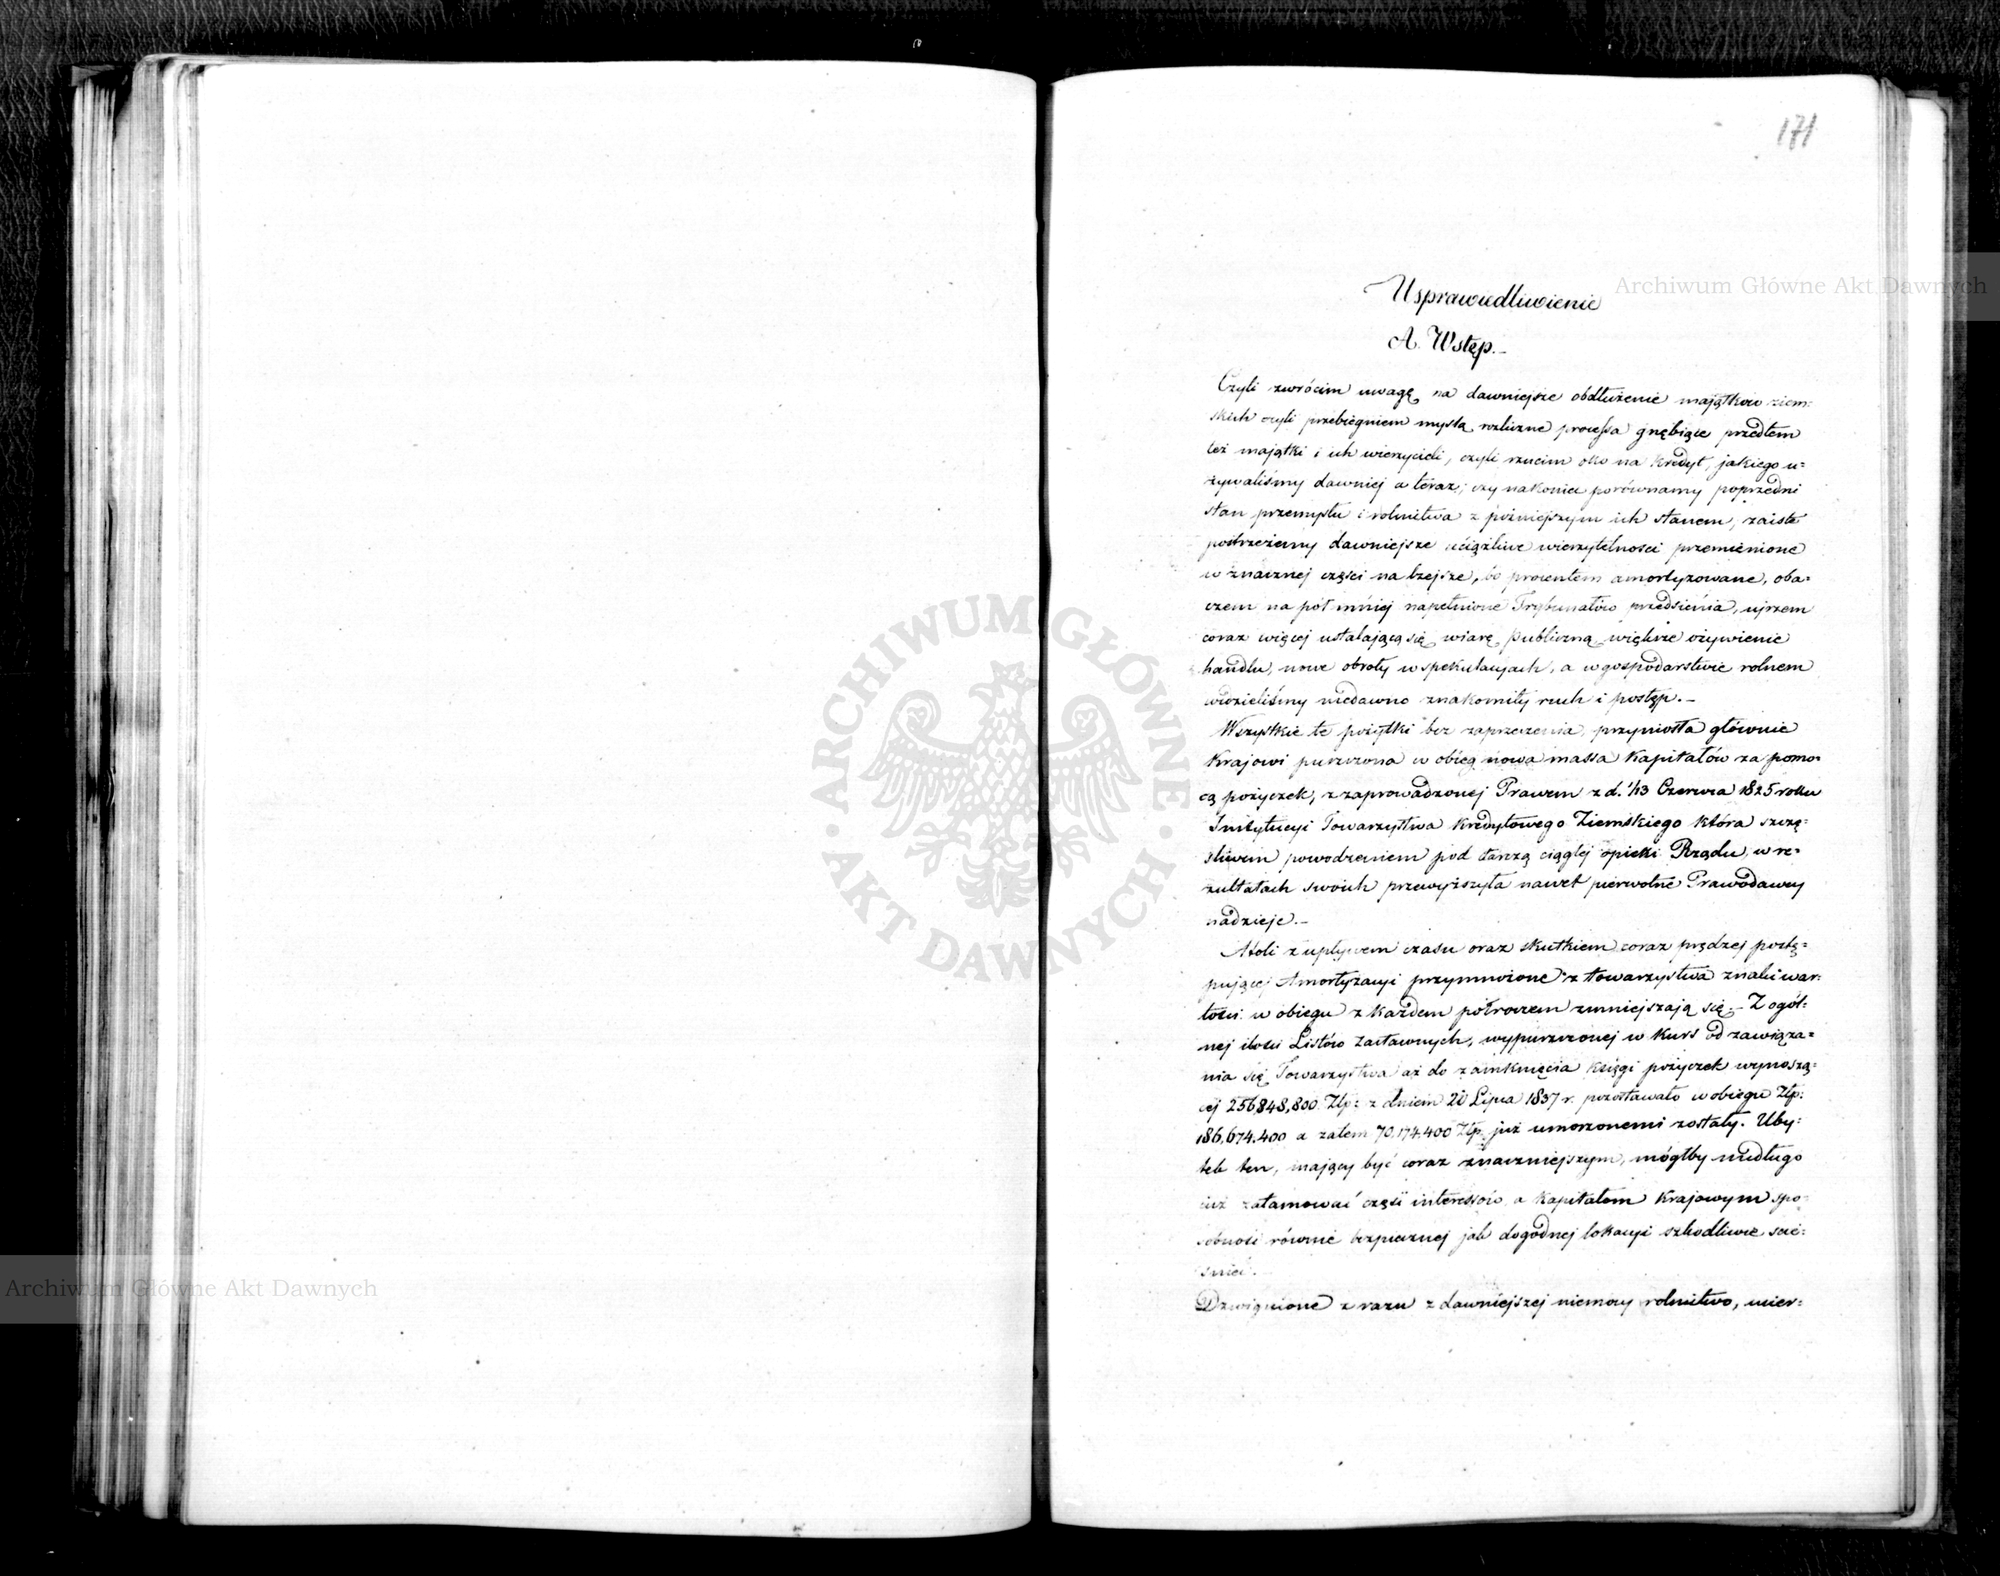 171
Usprawiedliwienie
A. Wstęp.–
Czyli zwrócim uwagę na dawniejsze obdłużenie majątków ziem=
skich czyli przebiegniem myslą rozliczne processa gnębiące przedtem
też majątki i ich wierzycieli, czyli rzucim oko na kredyt, jakiego u=
żywaliśmy dawniej a teraz; czy nakoniec porównamy poprzedni
stan przemysłu i rolnictwa z pózniejszym ich stanem, zaiste
postrzeżemy dawniejsze uciążliwe wierzytelnosci przemienione
w znacznej części na lżejsze, bo procentem amortyzowane, oba=
czem na pół mniej napełnione Trybunałów przedsienia, ujrzem
coraz więcej ustalającą się wiarę publiczną, większe ożywienie
handlu, nowe obroty w spekulacyach, a w gospodarstwie rolnem
widzieliśmy niedawno znakomity ruch i postęp.–
Wszystkie te pożytki bez zaprzeczenia, przyniosła głównie
Krajowi puszczona w obieg nowa massa Kapitałów za pomo=
cą pożyczek, z zaprowadzonej Prawem z d. 1/13 Czerwca 1825 roku
Instytucyi Towarzystwa Kredytowego Ziemskiego która szczę=
śliwem powodzeniem pod tarczą ciągłej opieki Rządu, w re=
zultatach swoich przewyższyła nawet pierwotne Prawodawcy
nadzieje.–
Atoli z upływem czasu oraz skutkiem coraz prędzej postę=
pującej Amortyzacyi przymnożone z towarzystwa znaki war=
tości w obiegu z każdem półroczem zmniejszają się.– Z ogól=
nej ilości Listów Zastawnych, wypuszczonej w kurs od zawiąza=
nia się Towarzystwa aż do zamknięcia księgi pożyczek wynoszą=
cej 256848,800 Złp: z dniem 20 Lipca 1837 r. pozostawało w obiegu Złp:
186,674.400 a zatem 70,174.400 Złp. już umorzonemi zostały. Uby=
tek ten, mający być coraz znaczniejszym, mógłby niedługo
już zatamować część interessów, a Kapitałom Krajowym spo=
sobność równie bezpiecznej jak dogodnej lokacyi szkodliwie ście=
śnić.
Dzwignione z razu z dawniejszej niemocy rolnictwo, uier=
Archiwum Główne Akt Dawnych
Archiwum Główne Akt Dawnych
ARCHIWUM GŁÓWNE · AKT DAWNYCH ·